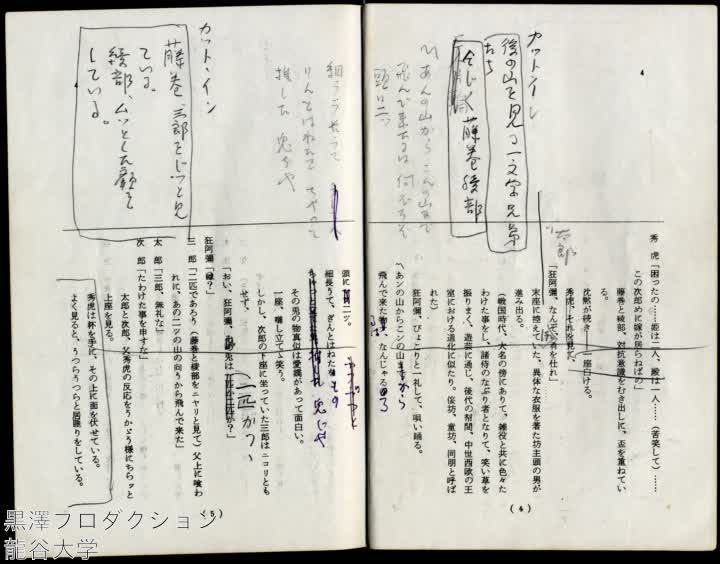 カットイン
後の山を見る一文字兄弟
たち
同じく 藤巻 綾部
あんの山から こんの山まで
飛んで来るは何ぢやろ
頭に二ツ
4
太郎
秀虎「困ったの……姫は一人、殿は一人……（苦笑して）……
この次郎めに嫁が居らねばの」
藤巻と綾部、対抗意識をむき出しに、盃を重ねてい
る。
沈黙が続き――一座白ける。
秀虎、それを見て、
「狂阿彌、なんぞ、肴を仕れ」
末座に控えていた、異体な衣服を著た坊主頭の男が
進み出る。
（戦国時代、大名の傍にありて、雑役と共に色々た
わけた事をし、諸侍のなぶり者となりて、笑い草を
振りまく、遊芸に通じ、後代の幇間、中世西欧の王
室における道化に似たり。伽坊、童坊、同朋と呼ば
れた）
狂阿彌、ぴょこりと一礼して、唄い踊る。
〽あンの山からこンの山
飛んで来た なんじゃる
(4)
細うて長うて
りんとはねたを ちやつと
推した 兎ぢや
カット・イン
藤巻、三郎をじっと見
ている。
綾部、ムッとした顔を
している。
頭に 二ッ、
細長うて、ぎんとはねた
兎じゃ
その兎の物真似は愛嬌があって面白い。
一座、囃し立てゝ笑う。
しかし、次郎の下座に坐っていた三郎はニコリとも
せず、
「おい、狂阿彌、 兎は
（二匹か」
狂阿彌「は？」
三　郎「二匹であろう（藤巻と綾部をニヤリと見て）父上に喰わ
れに、あの二ツの山の向うから飛んで来た」
太　郎「三郎、無礼な」
次　郎「たわけた事を申すな」
太郎と次郎、父秀虎の反応をうかゞう様にちらッと
上座を見る。
秀虎は杯を手に、その上に面を伏せている。
よく見ると、うつらうつらと居睡りをしている。
(5)
黒澤プロダクション
龍谷大学